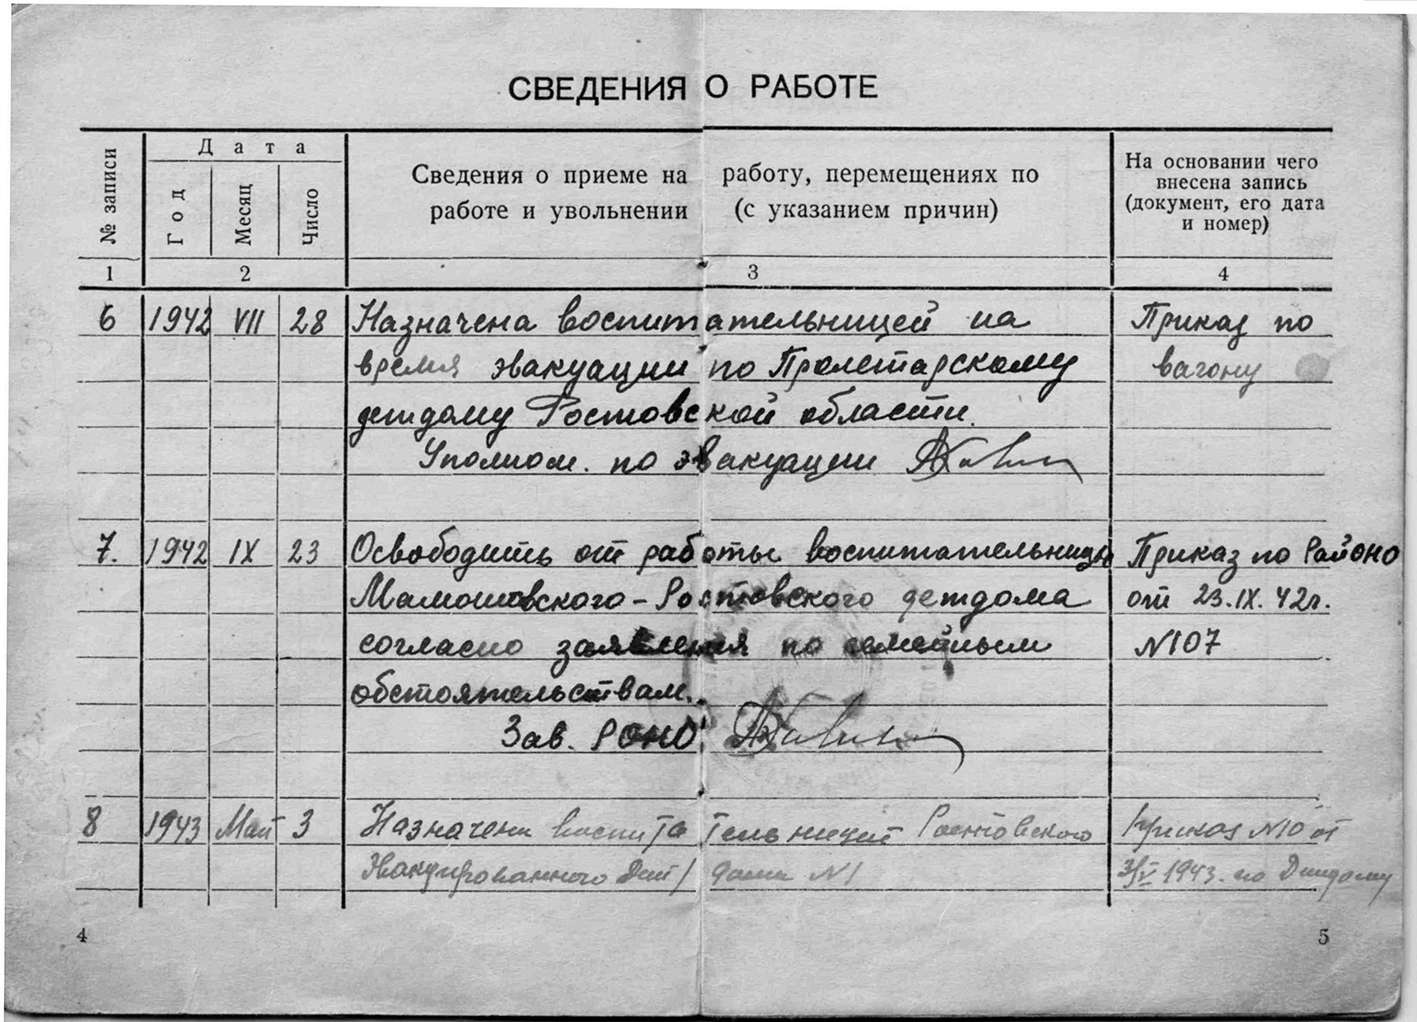 СВЕДЕНИЯ О РАБОТЕ
№ записи
Дата
Год
Месяц
Число
Сведения о приеме на работу, перемещениях по
работе и увольнении (с указанием причин)
На основании чего
внесена запись
(документ, его дата
и номер)
1 2 3 4
6 1942 VII 28 Назначена воспитательницей на Приказ по
время эвакуации по Пролетарскому вагону
детдому Ростовской области.
Уполном. по эвакуации
7. 1942 IX 23 Освободить от работы воспитательницу Приказ по Районо
Ростовского детдома от 23.IX.42г.
согласно заявления по семейным N107
обстоятельствам.
Зав. РОНО
8 1943 Май 3 Назначена воспитательницей Ростовского Приказ N10 от
Эвакуированного Дет/дома N1 3/V 1943. по Детдому
4
5